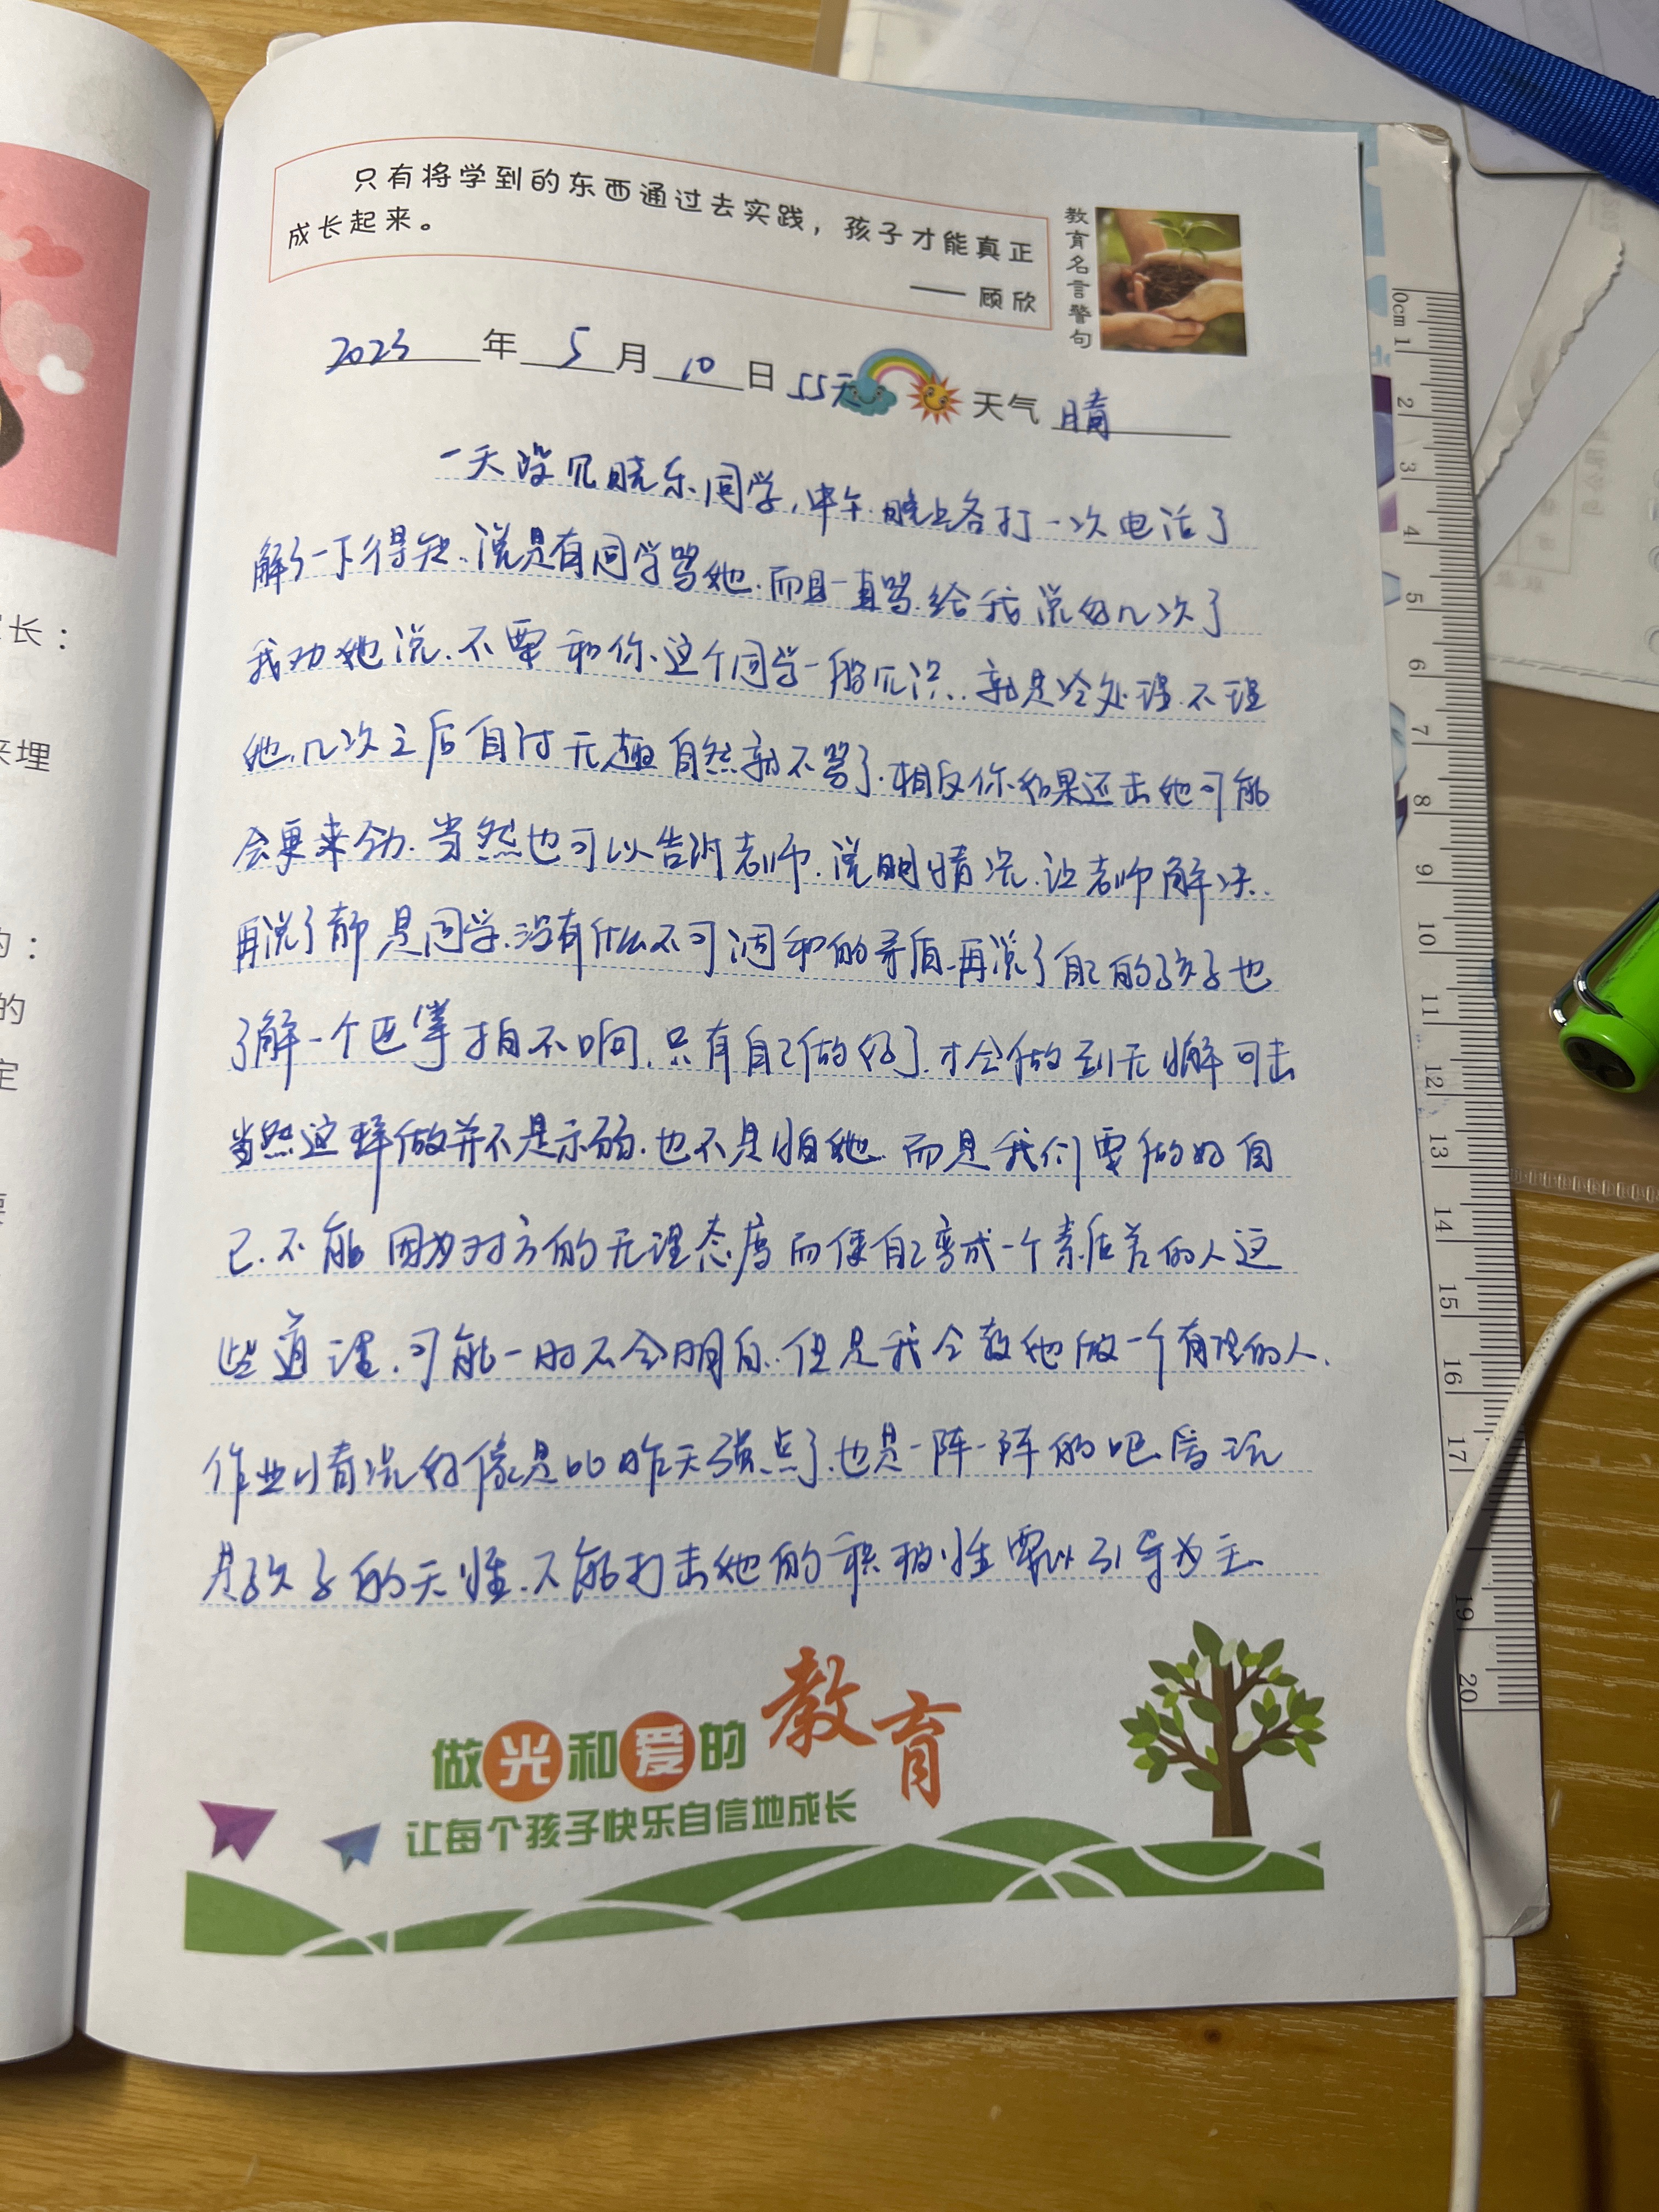 只有将学到的东西通过去实践，孩子才能真正
成长起来。
—— 顾欣
教育名言警句
2023年5月10日 55天 天气 晴
一天没见晓乐同学，中午.晚上各打一次电话了
解了一下得知.说是有同学骂她.而且一直骂.给我说好几次了
我劝她说.不要和你这个同学一般见识..就是冷处理.不理
她.几次之后自讨无趣自然就不骂了.相反你如果还击她可能
会更来劲.当然也可以告诉老师.说明情况.让老师解决.
再说了都是同学.没有什么不可调和的矛盾.再说了自己的孩子也
了解一个巴掌拍不响.只有自己做好了.才会做到无懈可击
当然这样做并不是示弱.也不是怕她.而是我们要做好自
己.不能因为对方的无理态度而使自己变成一个素质差的人这
些道理.可能一时不会明白.但是我会教她做一个有理的人.
作业情况好像是比昨天强点了.也是一阵一阵的吧.爱玩
是孩子的天性.不能打击她的积极性要以引导为主.
做光和爱的教育
让每个孩子快乐自信地成长
长：
来理
的：
的
定
0cm 1
2
3
4
5
6
7
8
9
10
11
12
13
14
15
16
17
19
20